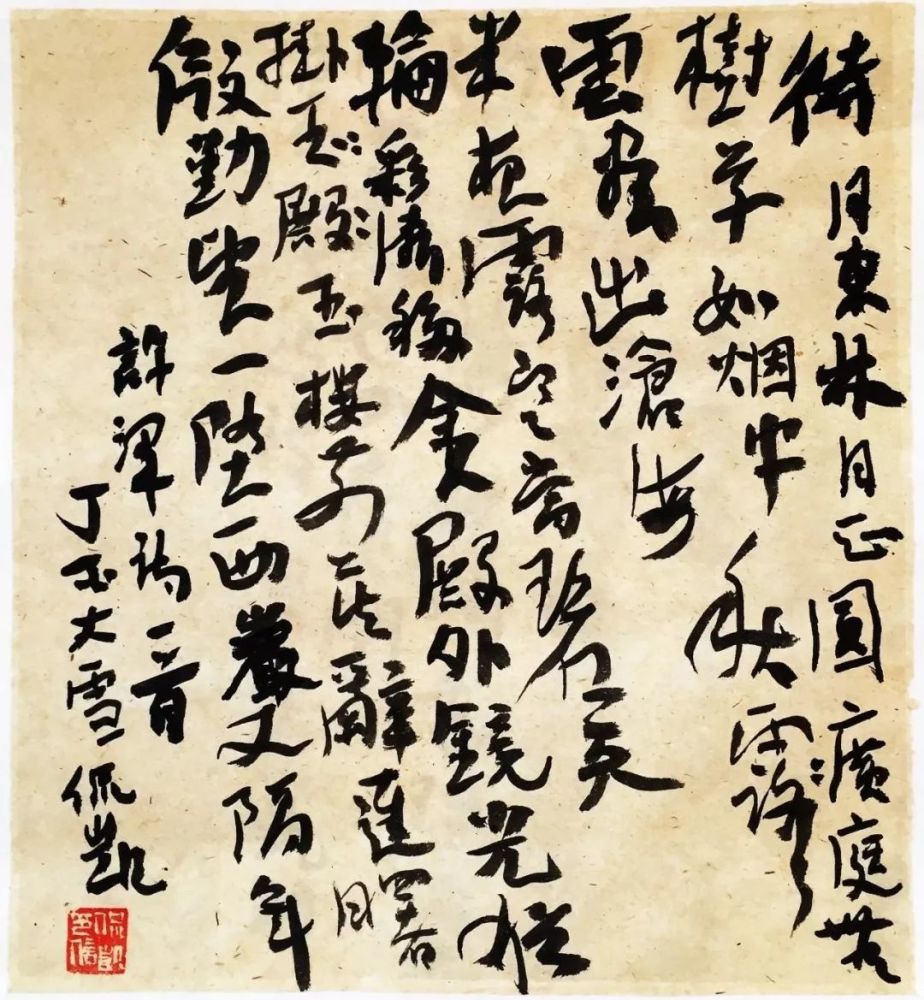 待月東林月正圓廣庭無
樹草如烟中秋雨露
雲盡出滄海
半夜露寒當碧天
輪彩漸移金殿外鏡光猶
掛玉殿玉樓前莫辭達曙
殷勤望一墮西巖又隔年
許渾詩一首
丁酉大雪侃凱